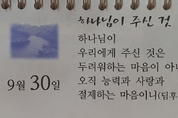 하나님이 주신 것
하나님이
우리에게 주신 것은
두려워하는 마음이 아니
오직 능력과 사랑과
절제하는 마음이니(딤후
9월 30일